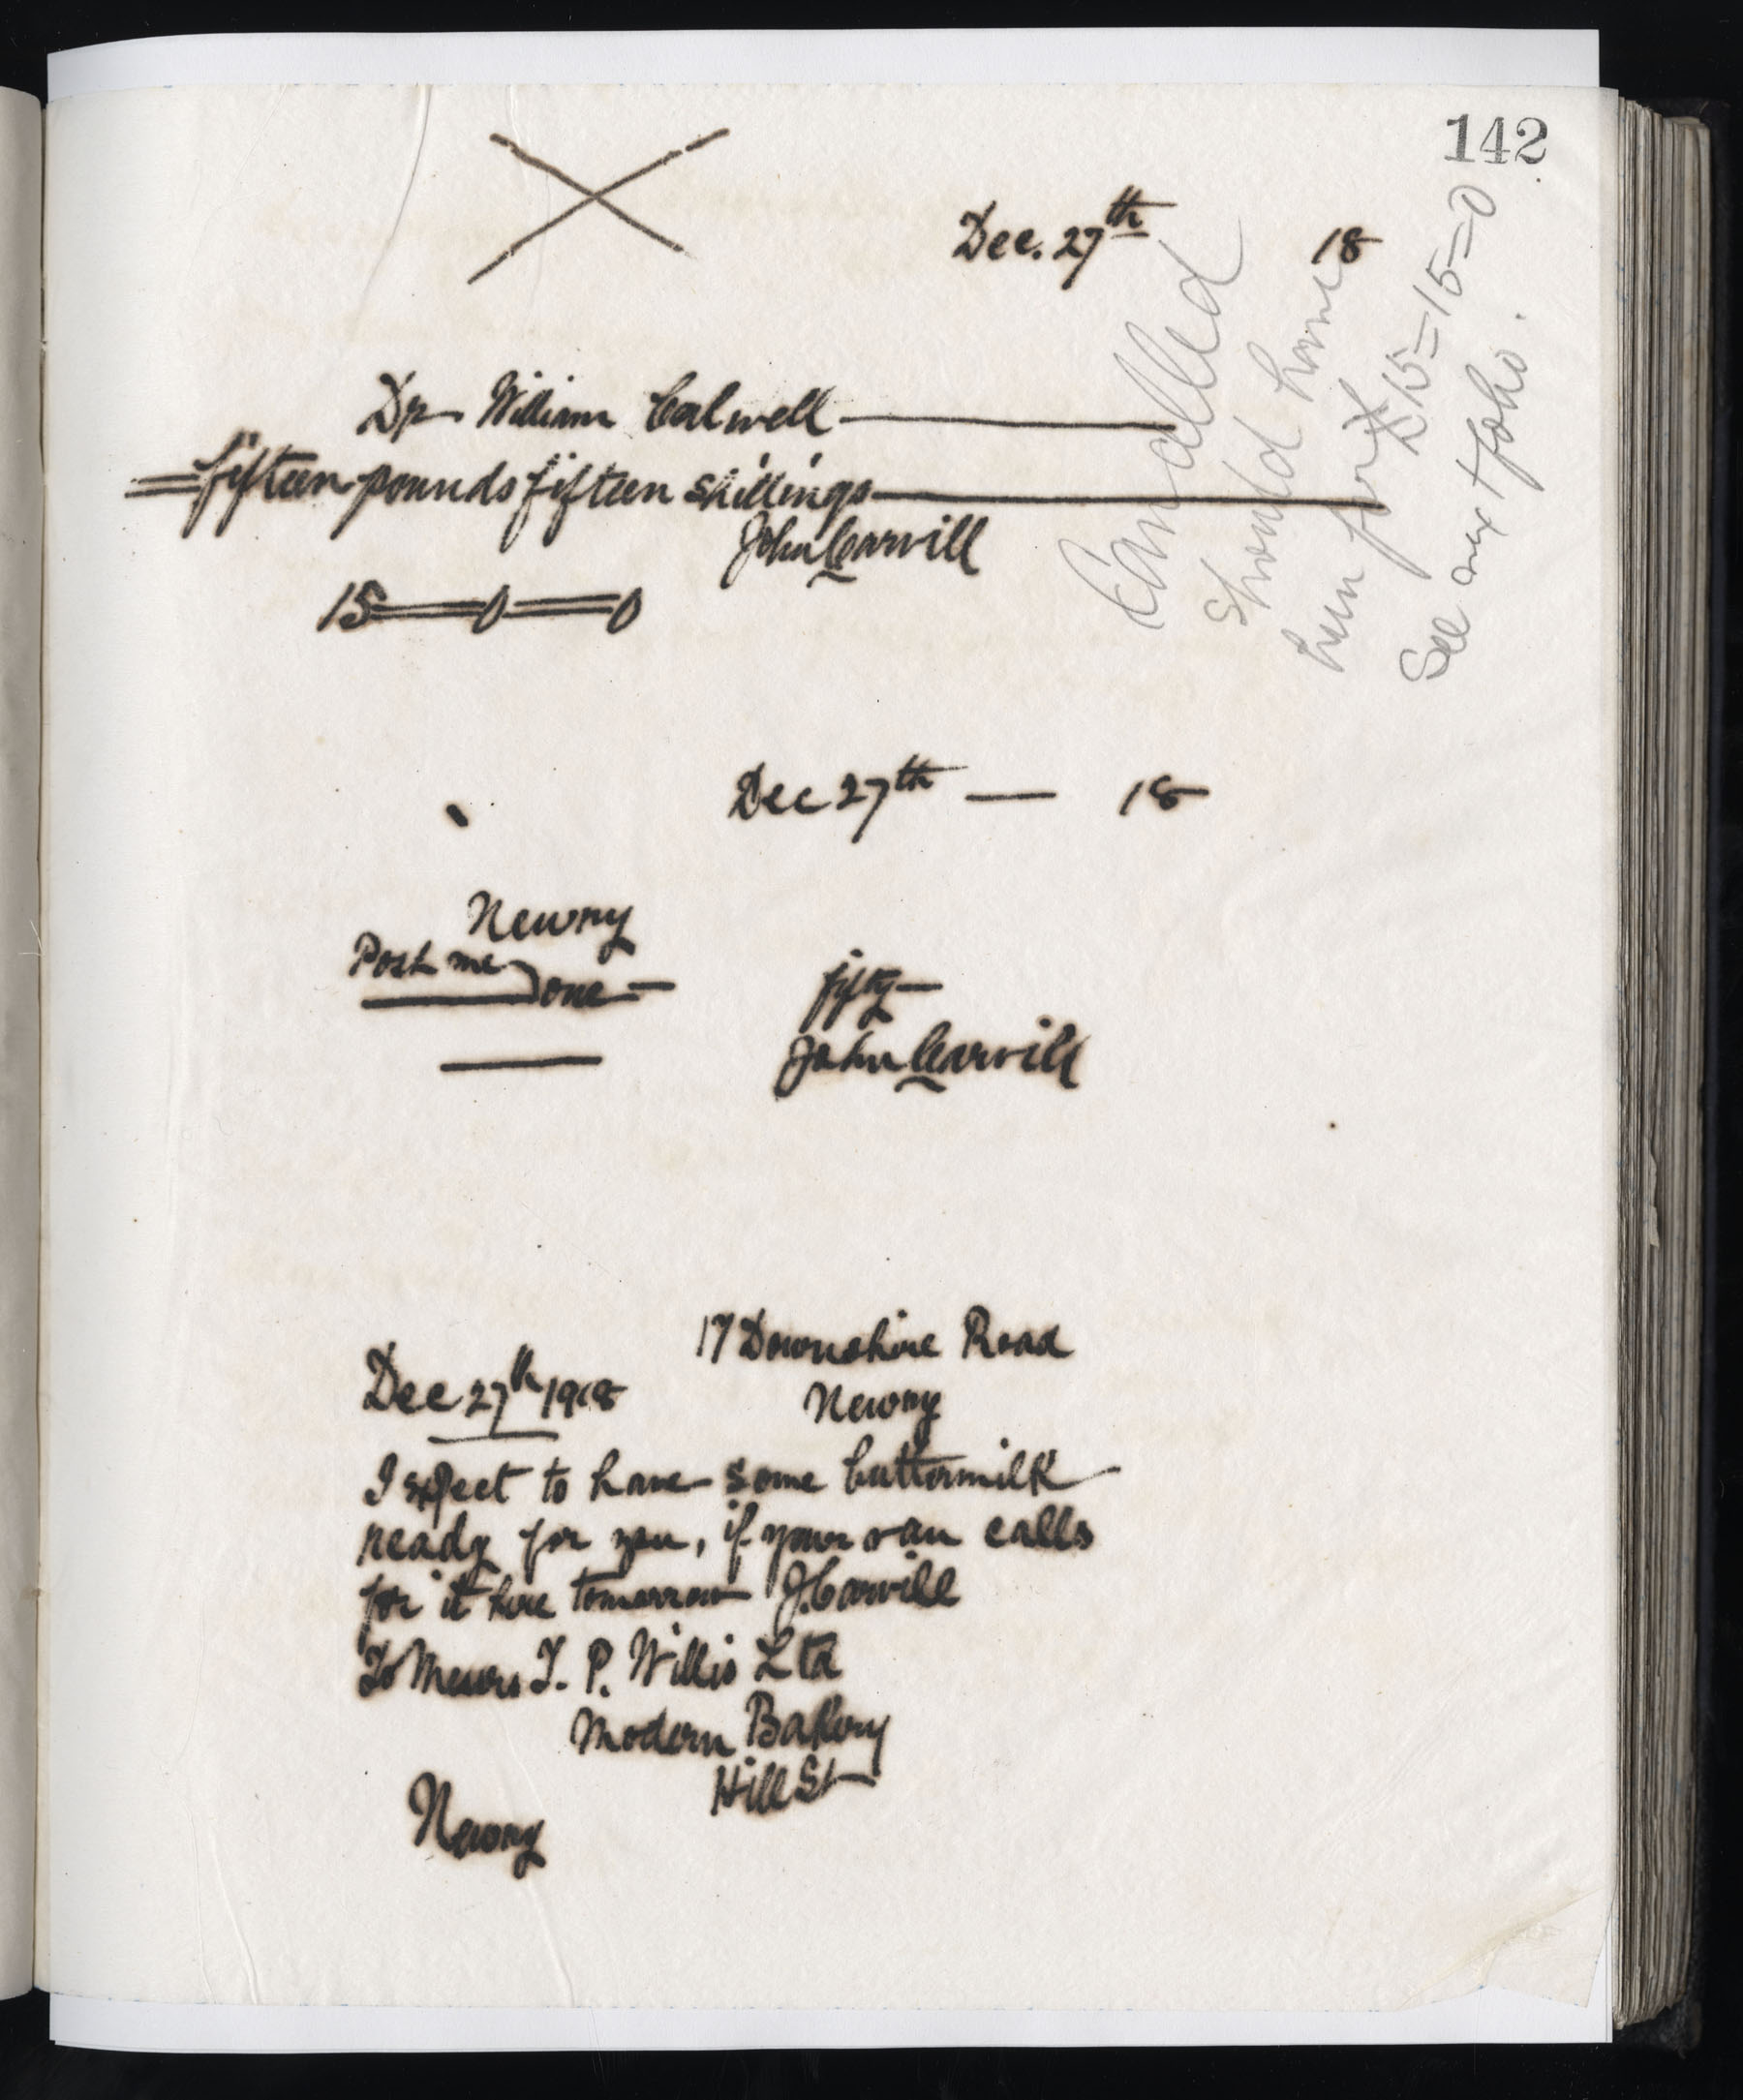 142
Dec. 27th 18
Dr William Calwell
fifteen pounds fifteen shillings
John Carvill
15=0=0
Cancelled
should have
been for £15=15=0
See next folio.
Dec 27th — 18
Newry
Post me
one — fifty —
John Carvill
17 Downshire Road
Dec 27th 1918 Newry
I expect to have some buttermilk
ready for you, if your van calls
for it here tomorrow J. Carvill
To Messrs T. P. Willis Ltd
Modern Bakery
Hill St
Newry